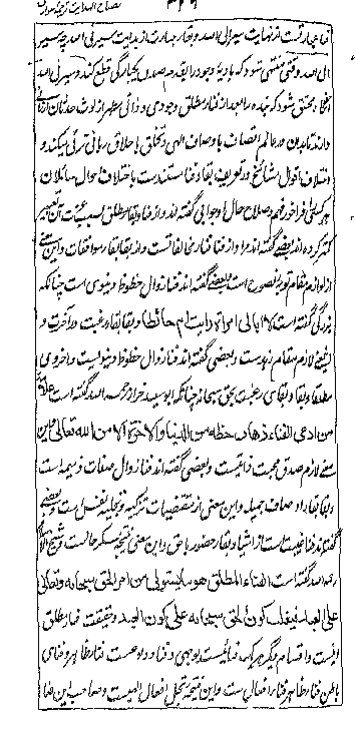 فنا عبارتست از نهایت سیر الی الله و بقا عبارت از بدایت سیر فی الله چه سیر
الی الله وقتی منتهی شود که بادیه وجود را بقدم صدق یکبارگی قطع کند و سیر فی الله
آنگاه محقق شود که بنده را بعد از فناء مطلق وجودی و ذاتی مطهر از لوث حدثان ارزانی
دارند تا بدین در عالم اتصاف باوصاف الهی و تخلق باخلاق ربانی ترقی میکند و
اختلاف اقوال مشایخ در تعریف بقا و فنا مستندست باختلاف احوال سایلان
هر کسی را فراخور فهم و صلاح حال او جوابی گفته اند و از فنا و بقاء مطلق بسبب عزت آن تعبیر
کمتر کرده اند بعضی گفته اند مراد از فنا فناء مخالفاتست و از بقا بقاء موافقات و این معنی
از لوازم مقام توبه نصوح است و بعضی گفته اند فنا زوال حظوظ دنیوی است چنانکه
بزرگی گفته است لا ابالی امراة رایت ام حائطا و بقا بقاء رغبت در آخرت و
این معنی لازم مقام زهدست و بعضی گفته اند فنا زوال حظوظ دنیویست و اخروی
مطلقا و بقا بقای رغبت بحق سبحانه چنانکه ابو سعید خراز رحمه الله گفته است علامة
من ادعی الفناء ذهاب حظه من الدنیا والآخرة الا من الله تعالی و این
معنی لازم صدق محبت ذاتیست و بعضی گفته اند فنا زوال صفات ذمیمه است
و بقا بقاء اوصاف جمیله و این معنی از مقتضیات تزکیه و تحلیه نفس است و بعضی
گفته اند فنا غیبت است از اشیا و بقا حضور با حق و این معنی نتیجه سکر حالست و شیخ الاسلام
رحمه الله گفته است الفناء المطلق هو ما یستولی من امر الحق سبحانه وتعالی
علی العبد فیغلب کون الحق سبحانه علی کون العبد و حقیقت فناء مطلق
اینست و اقسام دیگر هر یک فنائیست بوجهی و فنا دو نوعست فناء ظاهر و فنای
باطن فناء ظاهر فناء افعالی ست و این نتیجه تجلی افعال الهیست و صاحب این فنا